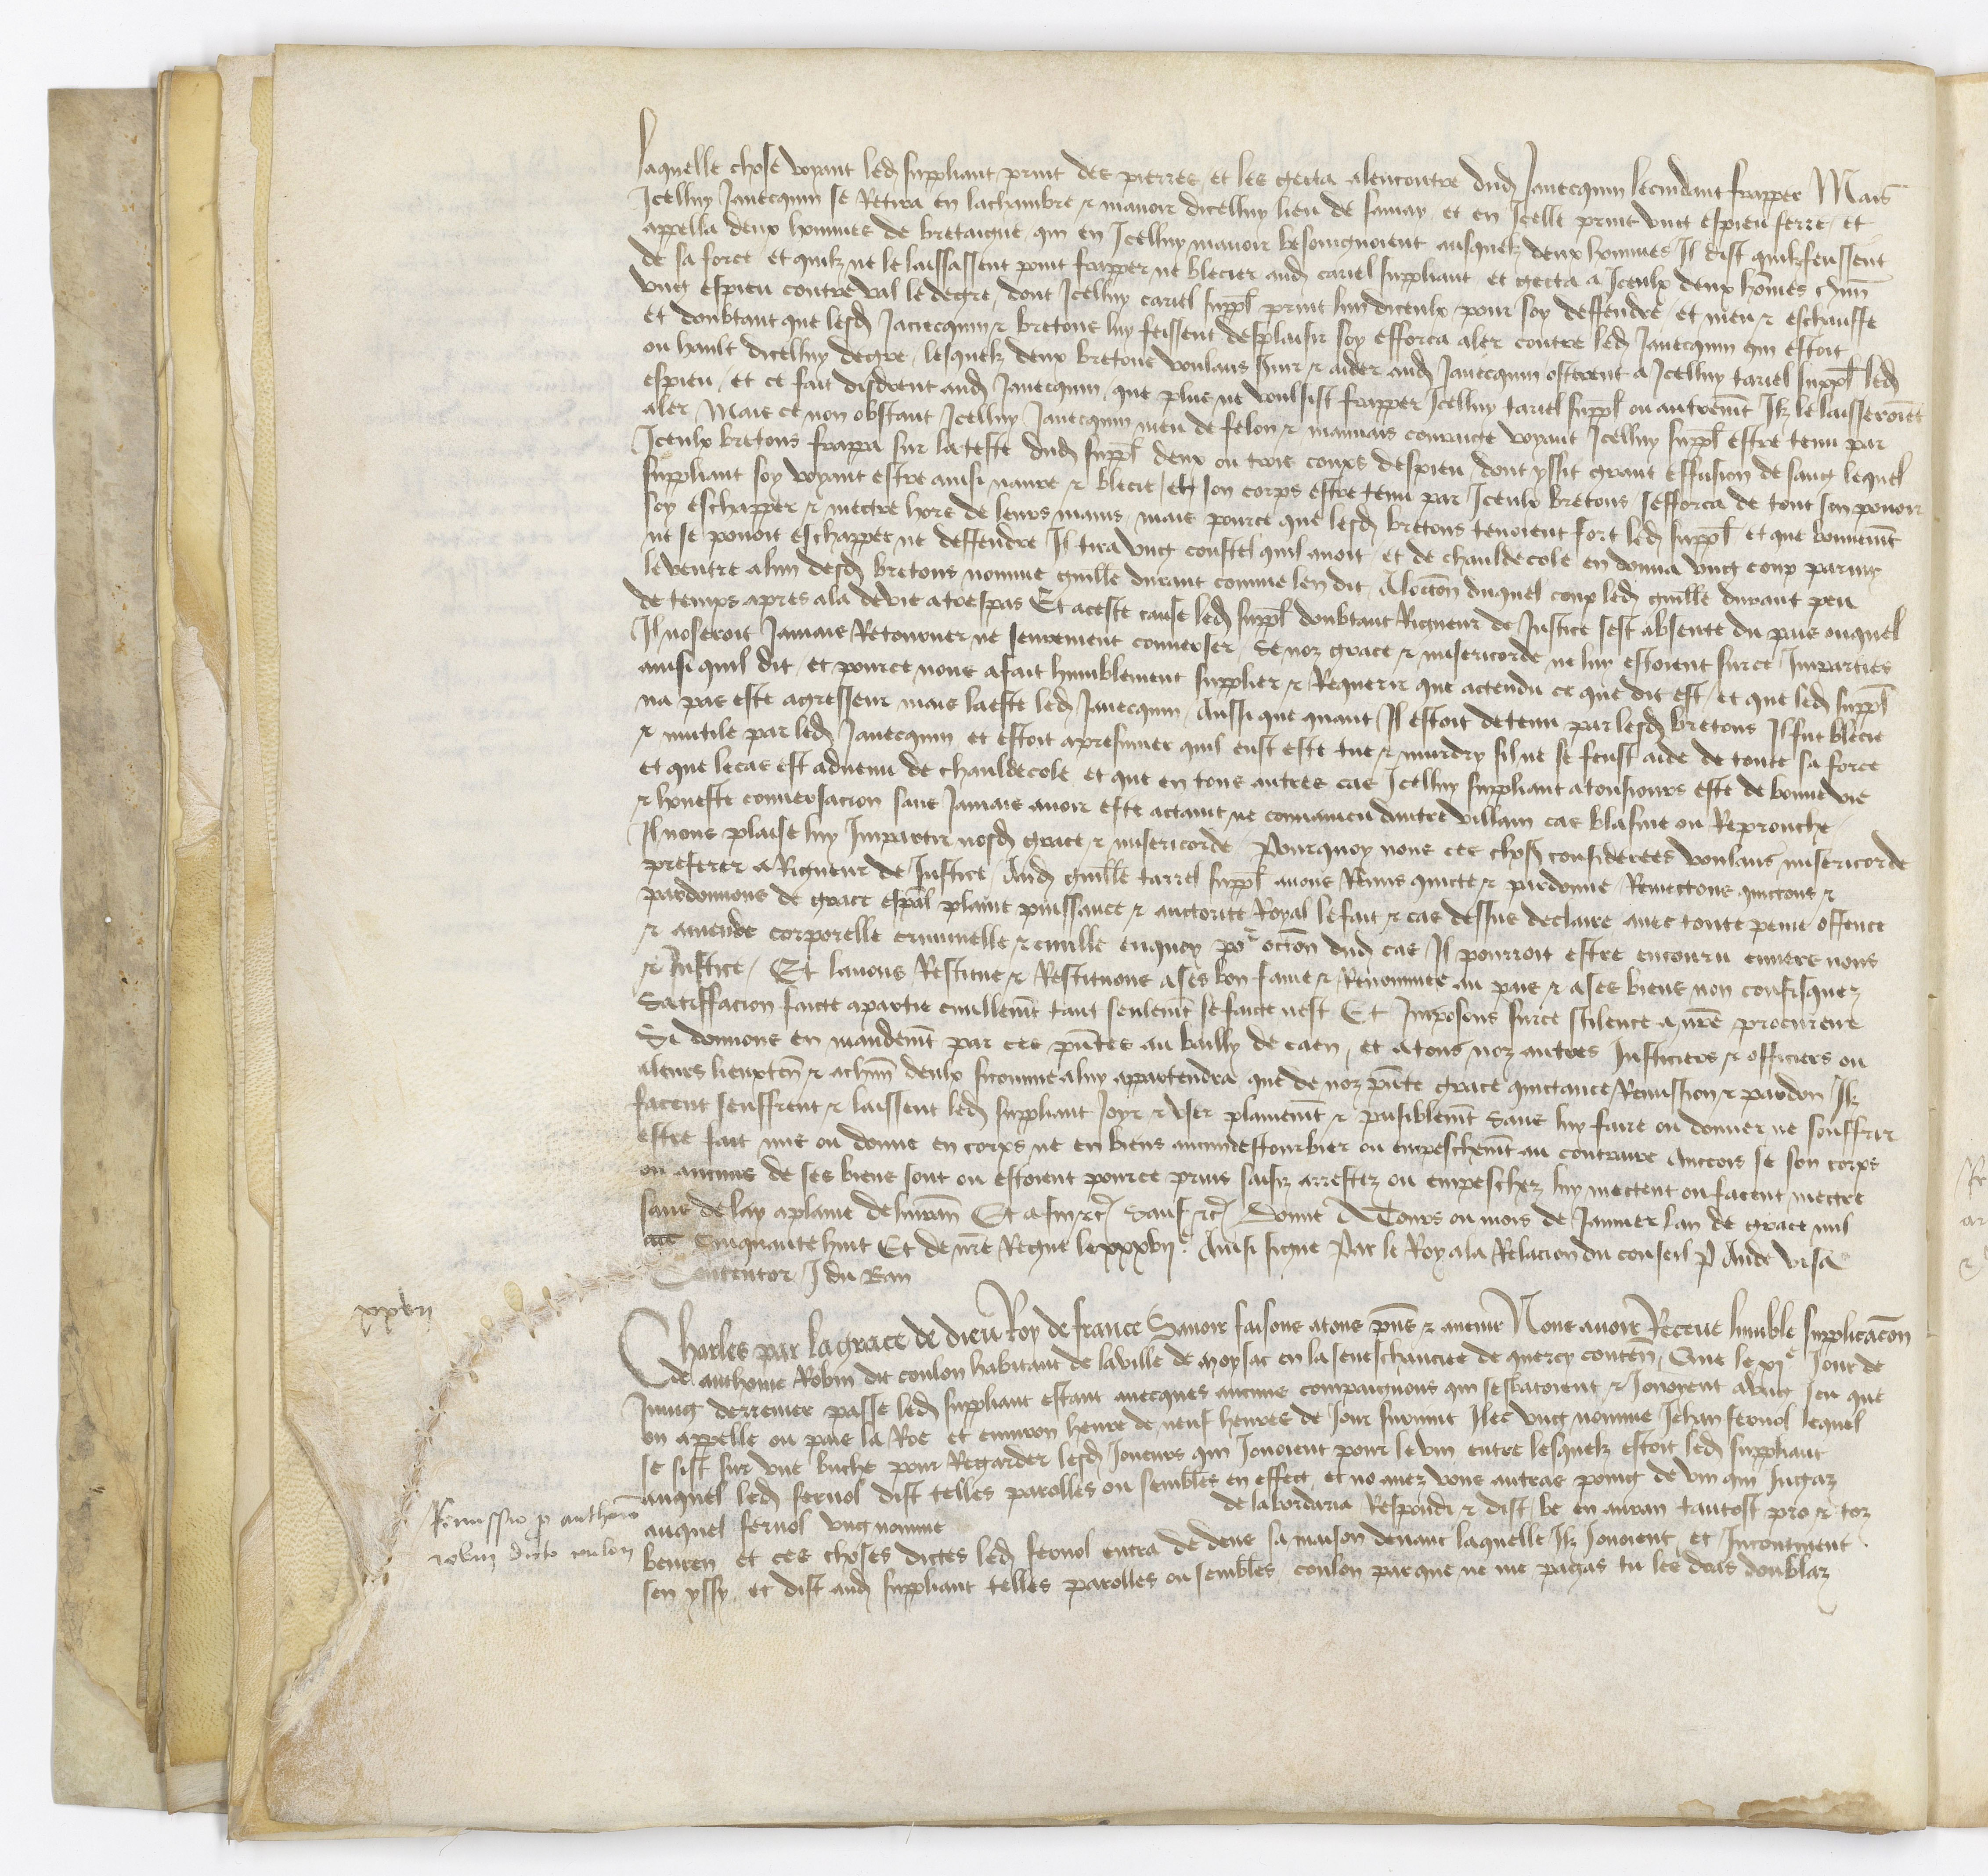 laquelle chose voyant led suppliant print des pierres et les gecta alencontre dud Janecquin le cuidant frapper Mais
Icelluy Janecquin se Retira en lachambre & manoir dicelluy lieu de et en Icelle print ung espieu ferre et
appella deux hommes de bretaigne qui en Icelluy manoir besoingnoient ausquelz deux hommes Il dist quilz feussent
de sa force et quilz ne le laissassent point frapper ne blecier aud tariel suppliant et gecta a Iceulx deux hommes chun
ung espieu contreval le degre dont Icelluy tariel suppl print lun diceulx pour soy deffendre et meu & eschauffe
et doubtant que lesd Janecquin & bretons luy feissent desplaisir soy efforca aler contre led Janecquin qui estoit
ou hault dicelluy degre lesquelz deux bretons voulans & aider aud Janecquin osterent a Icelluy tariel suppl led
espieu et ce fait disdrent aud Janecquin que plus ne voulsist frapper Icelluy tariel suppl ou autremt Ilz le laisseroient
aler Mais ce non obstant Icelluy Janecquin meu de felon & mauvais couraige voyant Icelluy suppl estre tenu par
Iceulx bretons frappa sur la teste dud suppl deux ou trois coups despieu dont yssit grant effusion de sang lequel
suppliant soy voyant estre ainsi navre & blecie et son corps estre tenu par Iceulx bretons sefforca de tout son povoir
soy eschapper & mectre hors de leurs mains mais pource que lesd bretons tenoient fort led suppl et que bonnemt
ne se povoit eschapper ne deffendre Il tira ung coustel quil avoit et de chauldecole en donna ung coup parmy
le ventre alun desd bretons nomme guille durant comme len dit Aloccon duquel coup led guille durant peu
de temps apres ala devie a trespas Et aceste cause led suppl doubtant Rigueur de Justice sest absente du pais ouquel
Il noseroit Jamais Retourner ne seurement converser se noz grace & misericorde ne luy estoient surce Imparties
ainsi quil dit et pource nous a fait humblement supplier & Requerir que actendu ce que dit est et que led suppl
na pas este agresseur mais laeste led Janecquin Aussi que quant Il estoit detenu par lesd bretons Il fut blecie
& mutile par led Janecquin et estoit apresumer quil eust este tue & murdry sil ne se feust aide de toute sa force
et que lecas est advenu de chauldecole et que en tous autres cas Icelluy suppliant a tousiours este de bonne vie
& honneste conversacion sans Jamais avoir este actaint ne convaincu dautre villain cas blasme ou Reprouche
Il nous plaise luy Impartir nosd grace & misericorde Pourquoy nous ces choses considerees voulans misericorde
preferer a Rigueur de Justice Aud guille tarrel suppl avons Remis quicte & pardonne Remectons quictons &
pardonnons de grace espal plaine puissance & auctorite Royal le fait & cas dessus declaire avec toute peine offence
& amende corporelle criminelle & civille enquoy por occon dud cas Il pourroit estre encouru envers nous
& Justice Et lavons Restitue & Restituons a ses bon fame & Renommee au pais & a ses biens non confisquez
Satisffacion faicte apartie civillemt tant seulemt se faicte nest Et Imposons surce silence a nre procureur
Si donnons en mandemt par ces pntes au bailly de caen et atous noz autres Justiciers & officiers ou
aleurs lieuxten & achun deulx sicomme aluy appartendra que de noz pnte grace quictance Remission & pardon Ilz
facent seuffrent & laissent led suppliant Joyr & user plainemt & paisiblemt Sans luy faire ou donner ne souffrir
estre fait mis ou donne en corps ne en biens aucundestourbier ou empeschemt au contraire Aincois se son corps
ou aucuns de ses biens sont ou estoient pource prins saisiz arrestez ou empeschez luy mectent ou facent mectre
sans delay aplaine delivran Et afin &c Sauf &c Donne A Tours ou mois de Janvier lan de grace mil
cccc Cinquantehuit Et de nre Regne le xxxvii e Ainsi signe Par le Roy ala Relacion du conseil P Aude visa
Contentor J du Ban
xxvii
Charles par la grace de dieu Roy de france Savoir faisons atous pns & avenir Nous avoir Receue lumble supplicacon
de anthoine Robin dit coulon habitant de laville de moysac en la seneschaucee de quercy conten Que le xi e Jour de
Juing derrenier passe led suppliant estant avecques aucuns compaignons qui sesbatoient & Jouoient a ung Jeu que
on appelle ou pais la Roe et environ heure de neuf heures de Jour survint Ilec ung nomme Jehan feruol lequel
se sist sur une buche pour Regarder lesd Joueurs qui Jouoient pour le vin entre lesquelz estoit led suppliant
auquel led feruol dist telles parolles ou sembles en effect et no avez vous autres poing de vin qui Jugaz
auquel feruol ung nomme de labordaria Respondi & dist be en auran tantost pro & toz
beuren et ces choses dictes led feruol entra dedens sa maison devant laquelle Ilz Jouoient et Incontinent
sen yssy et dist aud suppliant telles parolles ou sembles coulon parque ne me pagas tu les doas doublaz
Remissio p anthonio
robin dicto coulon